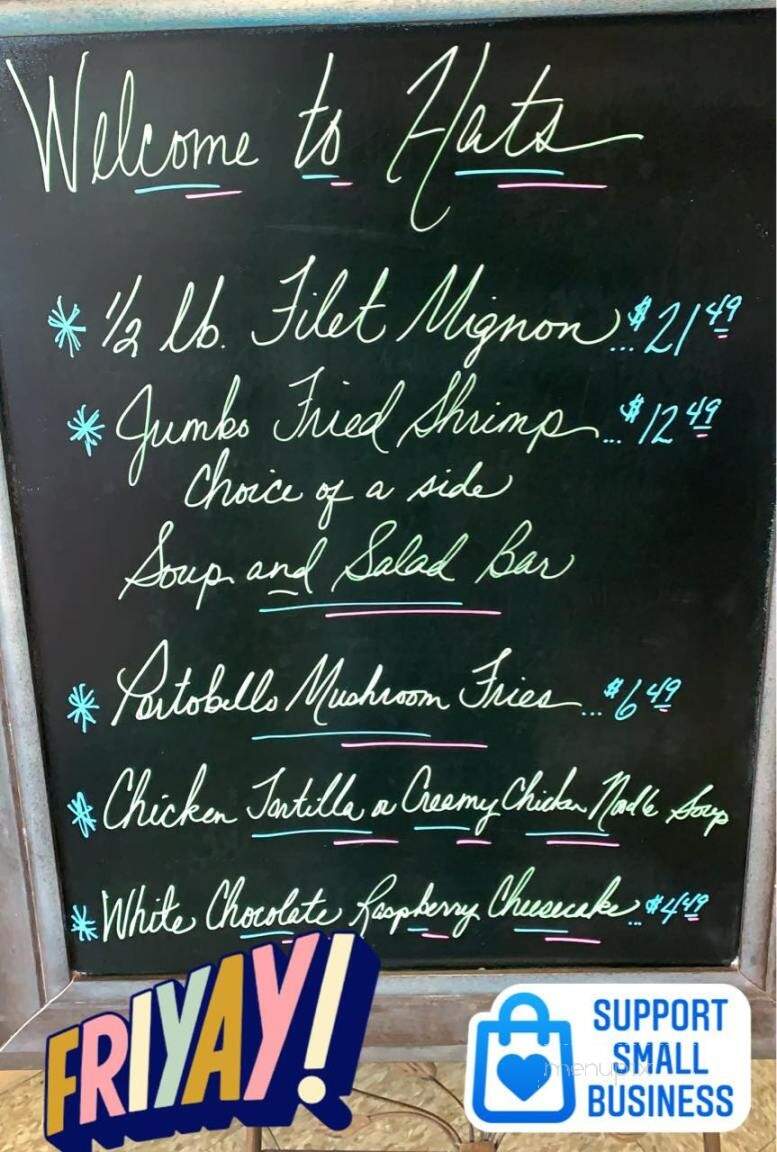 Welcome to Hats
* 1/2 lb. Filet Mignon...$21.49
* Jumbo Fried Shrimp...$12.49
Choice of a side
Soup and Salad Bar
* Portobello Mushroom Fries...$6.49
* Chicken Tortilla or Creamy Chicken Noodle Soup
* White Chocolate Raspberry Cheesecake...$4.49
FRIYAY!
SUPPORT
SMALL
BUSINESS